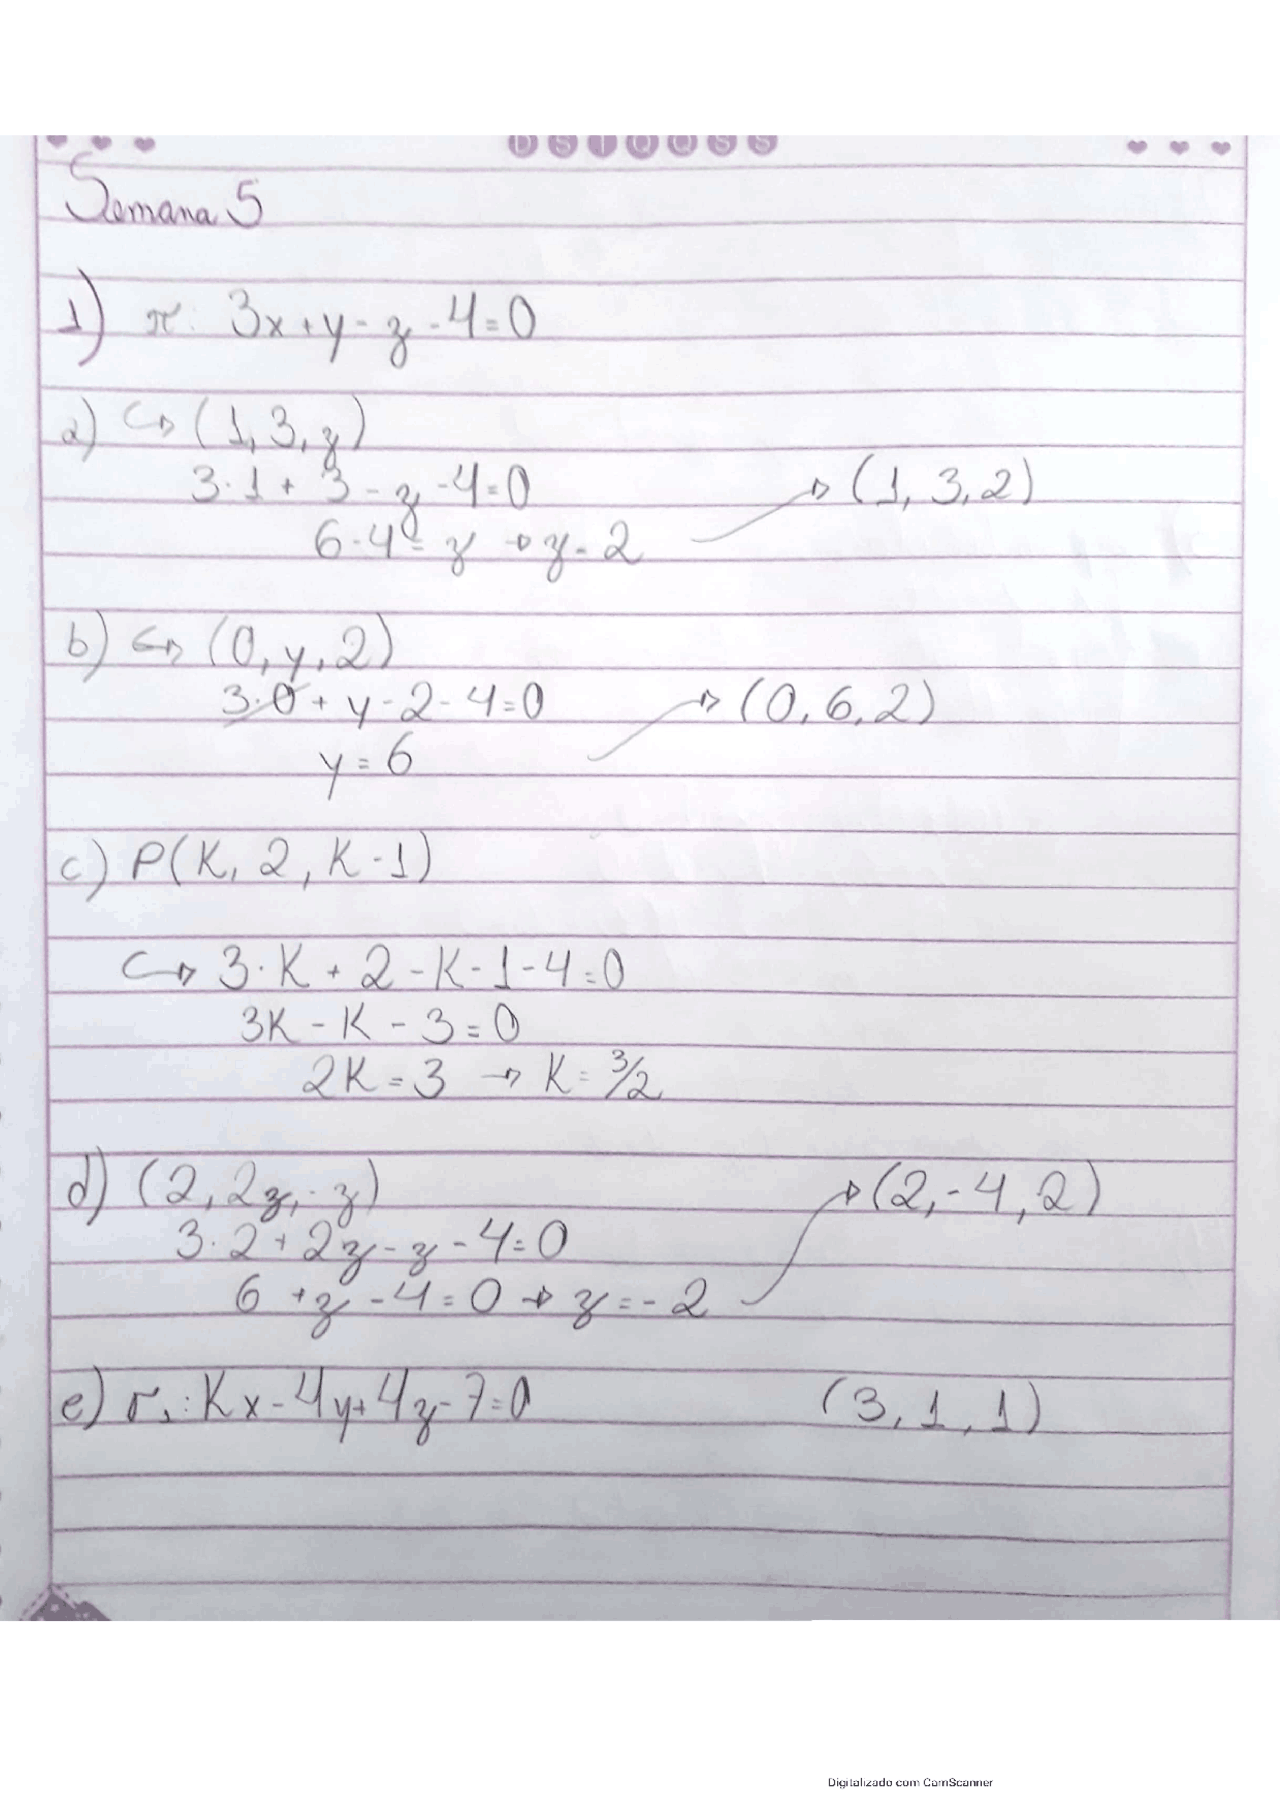 D S T Q Q S S
Semana 5
1) π: 3x+y-z-4=0
a) ↪ (1,3,z)
3·1+3-z-4=0 → (1,3,2)
6-4=z → z=2
b) ↪ (0,y,2)
3·0+y-2-4=0 → (0,6,2)
y=6
c) P(K,2,K-1)
↪ 3·K+2-K-1-4=0
3K-K-3=0
2K=3 → K=3/2
d) (2,2z,-z) → (2,-4,2)
3·2+2z-z-4=0
6+z-4=0 → z=-2
e) : Kx-4y+4z-7=0 (3,1,1)
Digitalizado com CamScanner